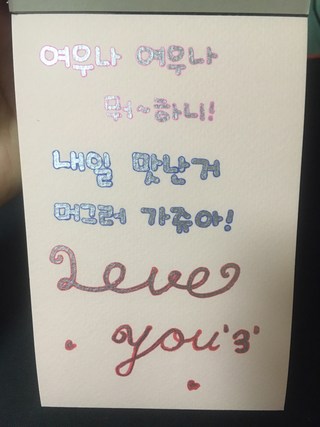 여우나 여우나
뭐~하니!
내일 맛난거
머그러 가쥬아!
Love
you '3'